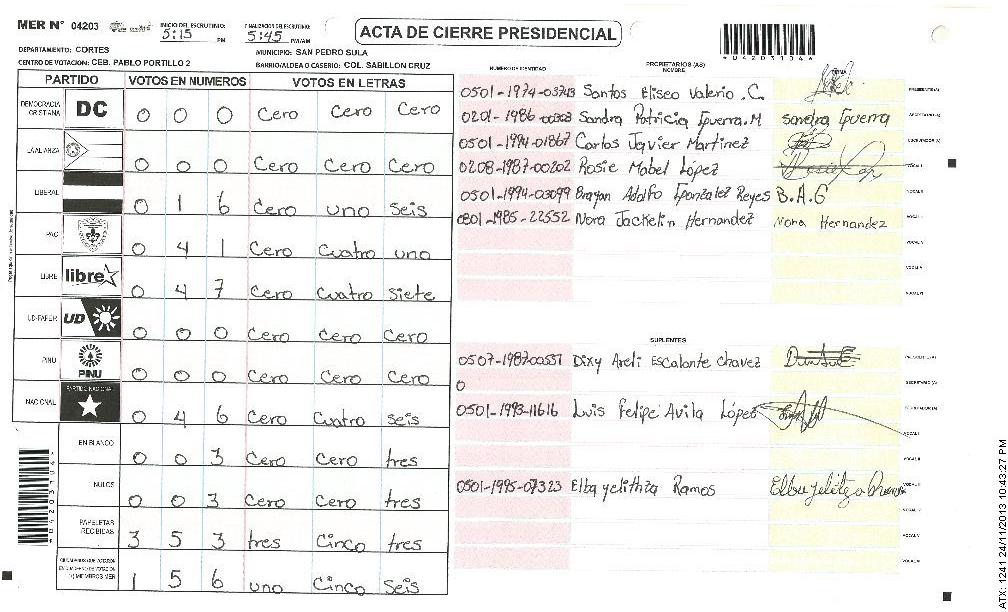 MER Nº 04203
INICIO DEL ESCRUTINIO: 5:15 PM
FINALIZACION DEL ESCRUTINIO: 5:45 PM/AM
ACTA DE CIERRE PRESIDENCIAL
*04203104*
DEPARTAMENTO: CORTES
MUNICIPIO: SAN PEDRO SULA
CENTRO DE VOTACION: CEB. PABLO PORTILLO 2
BARRIO/ALDEA O CASERIO: COL. SABILLON CRUZ
PARTIDO VOTOS EN NUMEROS VOTOS EN LETRAS
DEMOCRACIA CRISTIANA DC 0 0 0 Cero Cero Cero
LA ALIANZA 0 0 0 Cero Cero Cero
LIBERAL 0 1 6 Cero uno seis
PAC 0 4 1 Cero Cuatro uno
LIBRE libre 0 4 7 Cero Cuatro Siete
UD-FAPER UD 0 0 0 Cero Cero Cero
PINU PINU 0 0 0 Cero Cero Cero
NACIONAL PARTIDO NACIONAL 0 4 6 Cero Cuatro seis
EN BLANCO 0 0 3 Cero Cero tres
NULOS 0 0 3 Cero Cero tres
PAPELETAS RECIBIDAS 3 5 3 tres Cinco tres
1 5 6 uno Cinco Seis
NUMERO DE IDENTIDAD PROPIETARIOS (AS) NOMBRE FIRMA
0501-1974-03743 Santos Eliseo Valerio .C. PRESIDENTE(A)
0201-1986-00303 Sandra Patricia Guerra.M sandra Guerra SECRETARIO(A)
0501-1994-01867 Carlos Javier Martinez ESCRUTADOR(A)
0208-1987-00202 Rosie Mabel López VOCAL I
0501-1994-03099 Brayan Adolfo Gonzalez Reyes B.A.G VOCAL II
0801-1985-22552 Nora Jackelin Hernandez Nora Hernandez
VOCAL IV
VOCAL V
VOCAL VI
SUPLENTES
0507-1987-00551 Dixy Areli Escalante Chavez PRESIDENTE(A)
0 SECRETARIO(A)
0501-1993-11616 Luis Felipe Avila López ESCRUTADOR(A)
VOCAL I
VOCAL II
0501-1995-07323 Elba yelithza Ramos
VOCAL IV
VOCAL V
VOCAL VI
*04203104*
ATX: 1241 24/11/2013 10:43:27 PM